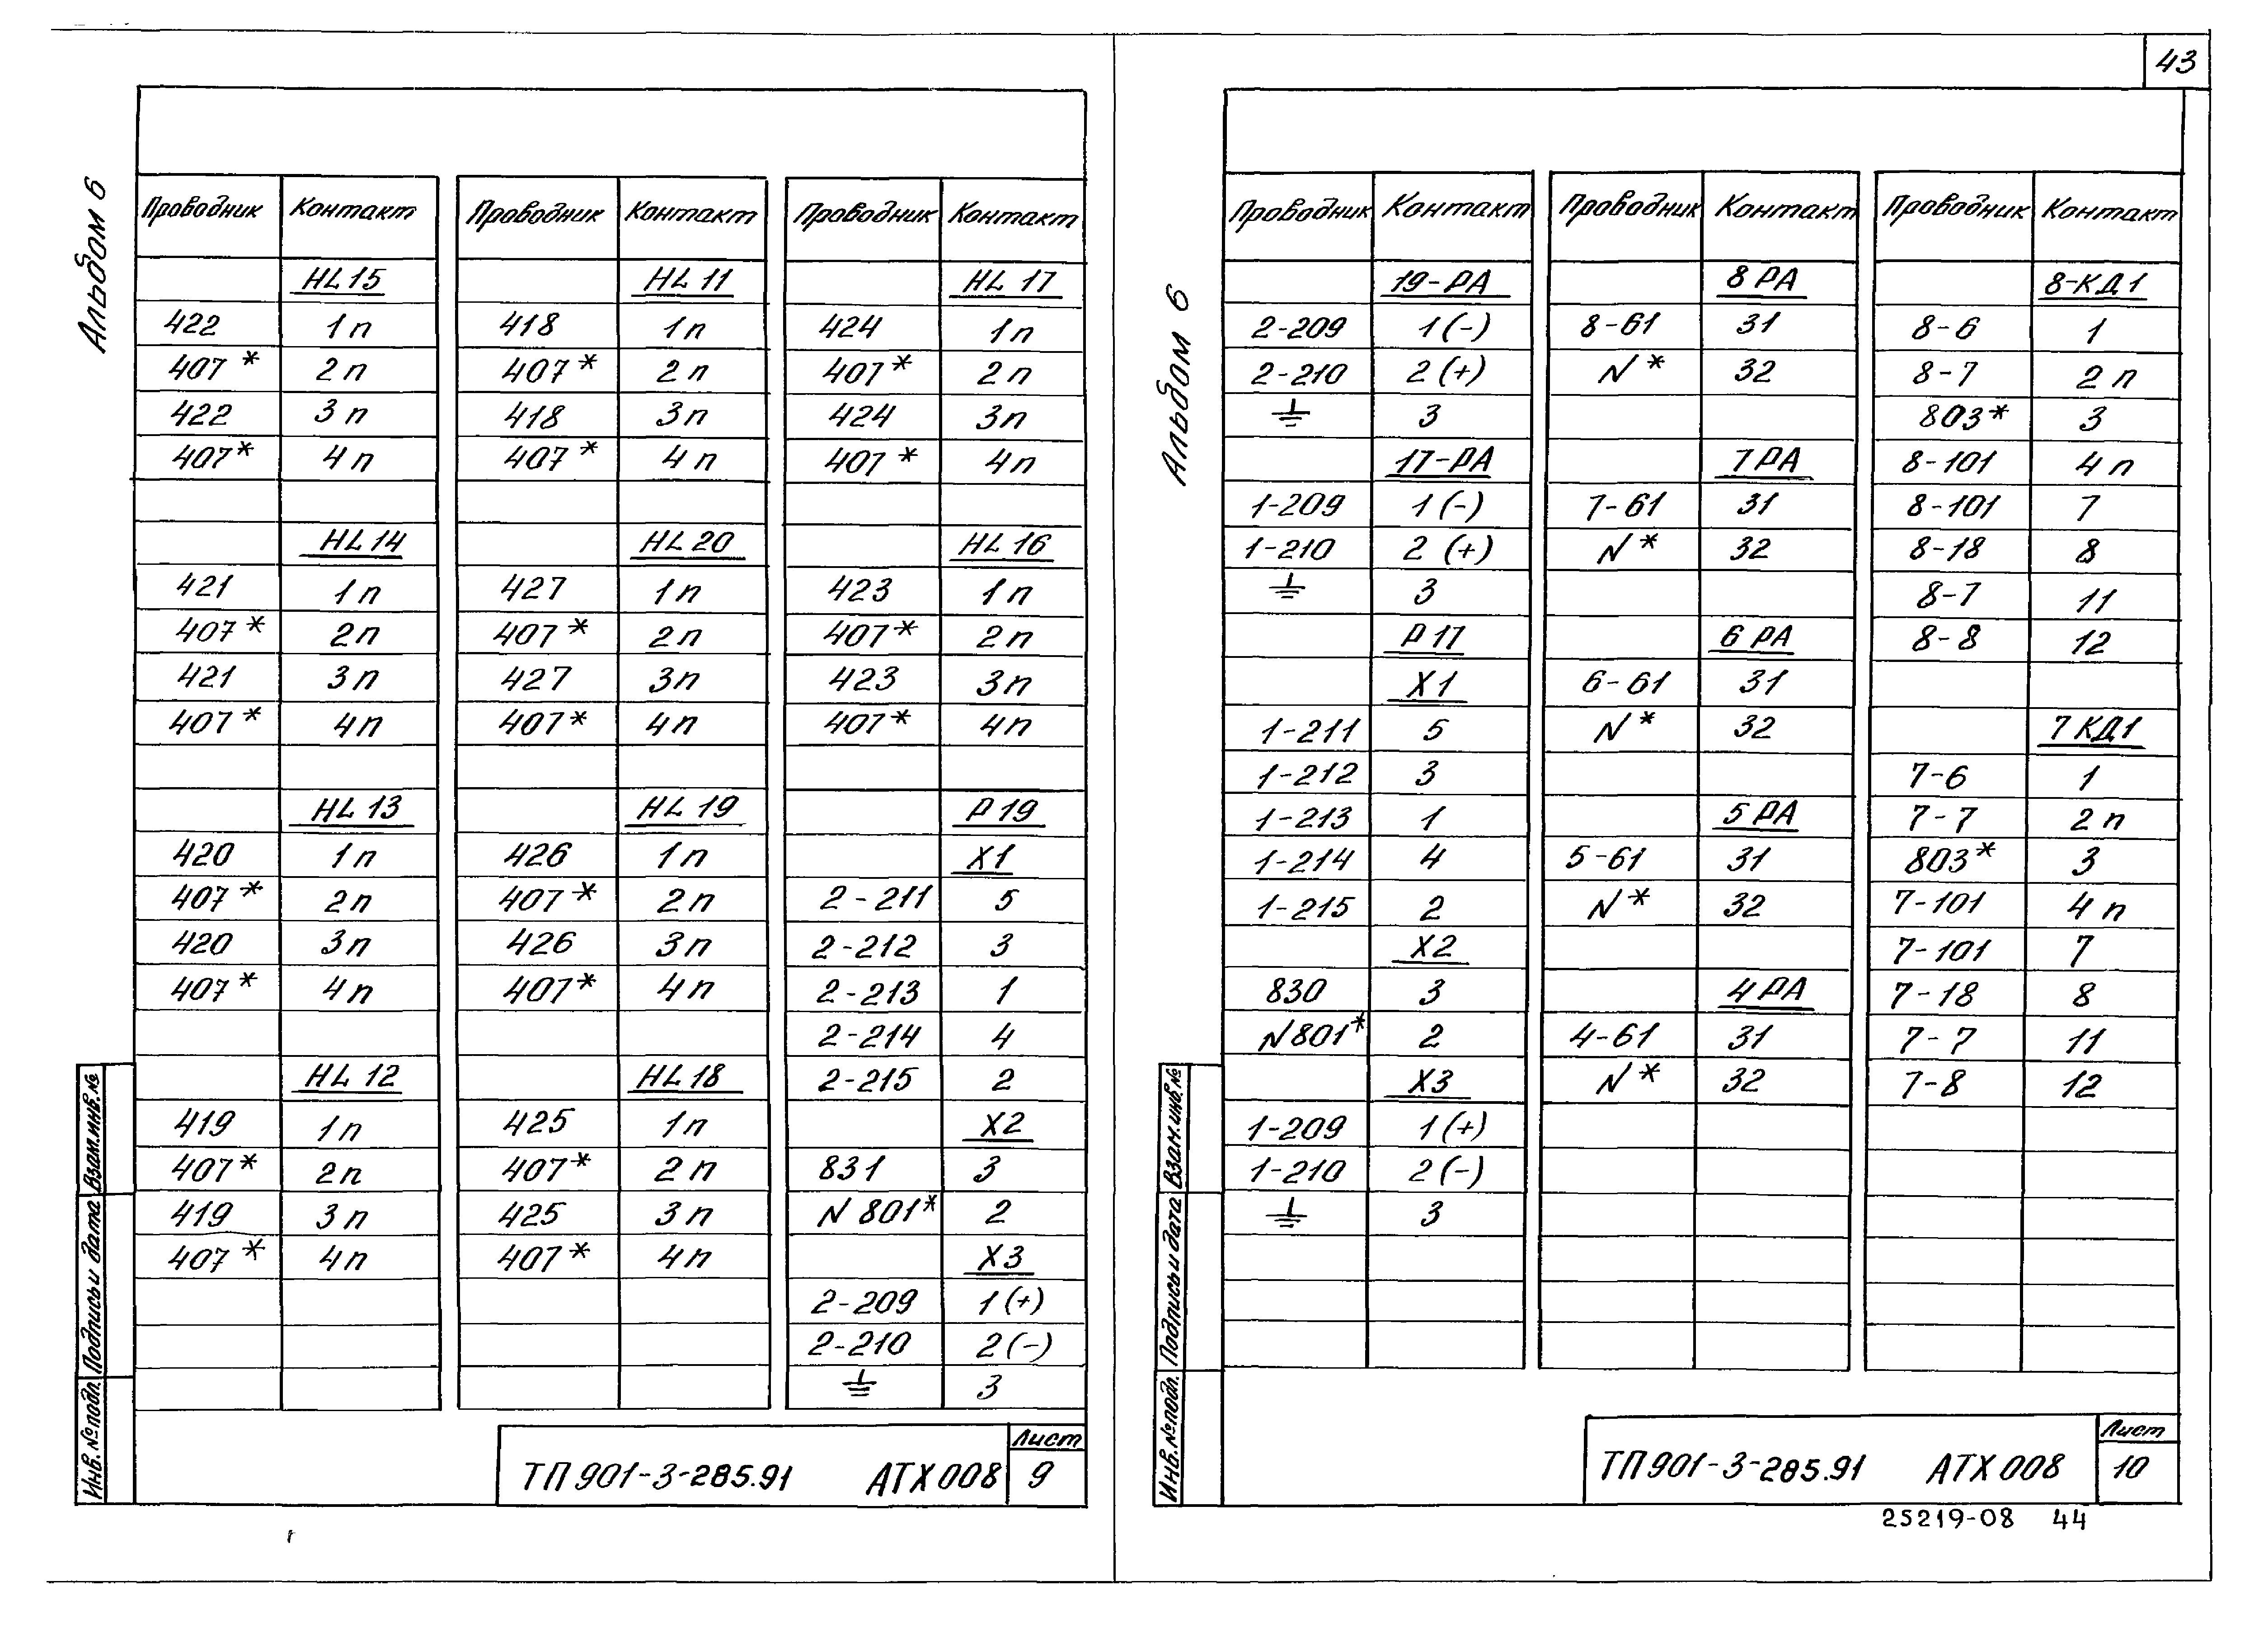 43
Альбом 6
Проводник Контакт Проводник Контакт Проводник Контакт
HL 15 HL 11 HL 17
422 1п 418 1п 424 1п
407* 2п 407* 2п 407* 2п
422 3п 418 3п 424 3п
407* 4п 407* 4п 407* 4п
HL 14 HL 20 HL 16
421 1п 427 1п 423 1п
407* 2п 407* 2п 407* 2п
421 3п 427 3п 423 3п
407* 4п 407* 4п 407* 4п
HL 13 HL 19 P 19
420 1п 426 1п X1
407* 2п 407* 2п 2-211 5
420 3п 426 3п 2-212 3
407* 4п 407* 4п 2-213 1
2-214 4
HL 12 HL 18 2-215 2
419 1п 425 1п X2
407* 2п 407* 2п 831 3
419 3п 425 3п N 801* 2
407* 4п 407* 4п X3
2-209 1 (+)
2-210 2 (-)
⏚ 3
Инв. № подл. Подпись и дата Взам. инв. №
Лист
ТП 901-3-285.91 АТХ 008 9
Альбом 6
Проводник Контакт Проводник Контакт Проводник Контакт
19-РА 8 РА 8-КД1
2-209 1 (-) 8-61 31 8-6 1
2-210 2 (+) N* 32 8-7 2 п
⏚ 3 803* 3
17-РА 7 РА 8-101 4 п
1-209 1 (-) 7-61 31 8-101 7
1-210 2 (+) N* 32 8-18 8
⏚ 3 8-7 11
P 17 6 РА 8-8 12
X1 6-61 31
1-211 5 N* 32 7 КД1
1-212 3 7-6 1
1-213 1 5 РА 7-7 2 п
1-214 4 5-61 31 803* 3
1-215 2 N* 32 7-101 4 п
X2 7-101 7
830 3 4 РА 7-18 8
N 801* 2 4-61 31 7-7 11
X3 N* 32 7-8 12
1-209 1 (+)
1-210 2 (-)
⏚ 3
Инв. № подл. Подпись и дата Взам. инв. №
Лист
ТП 901-3-285.91 АТХ 008 10
25219-08 44